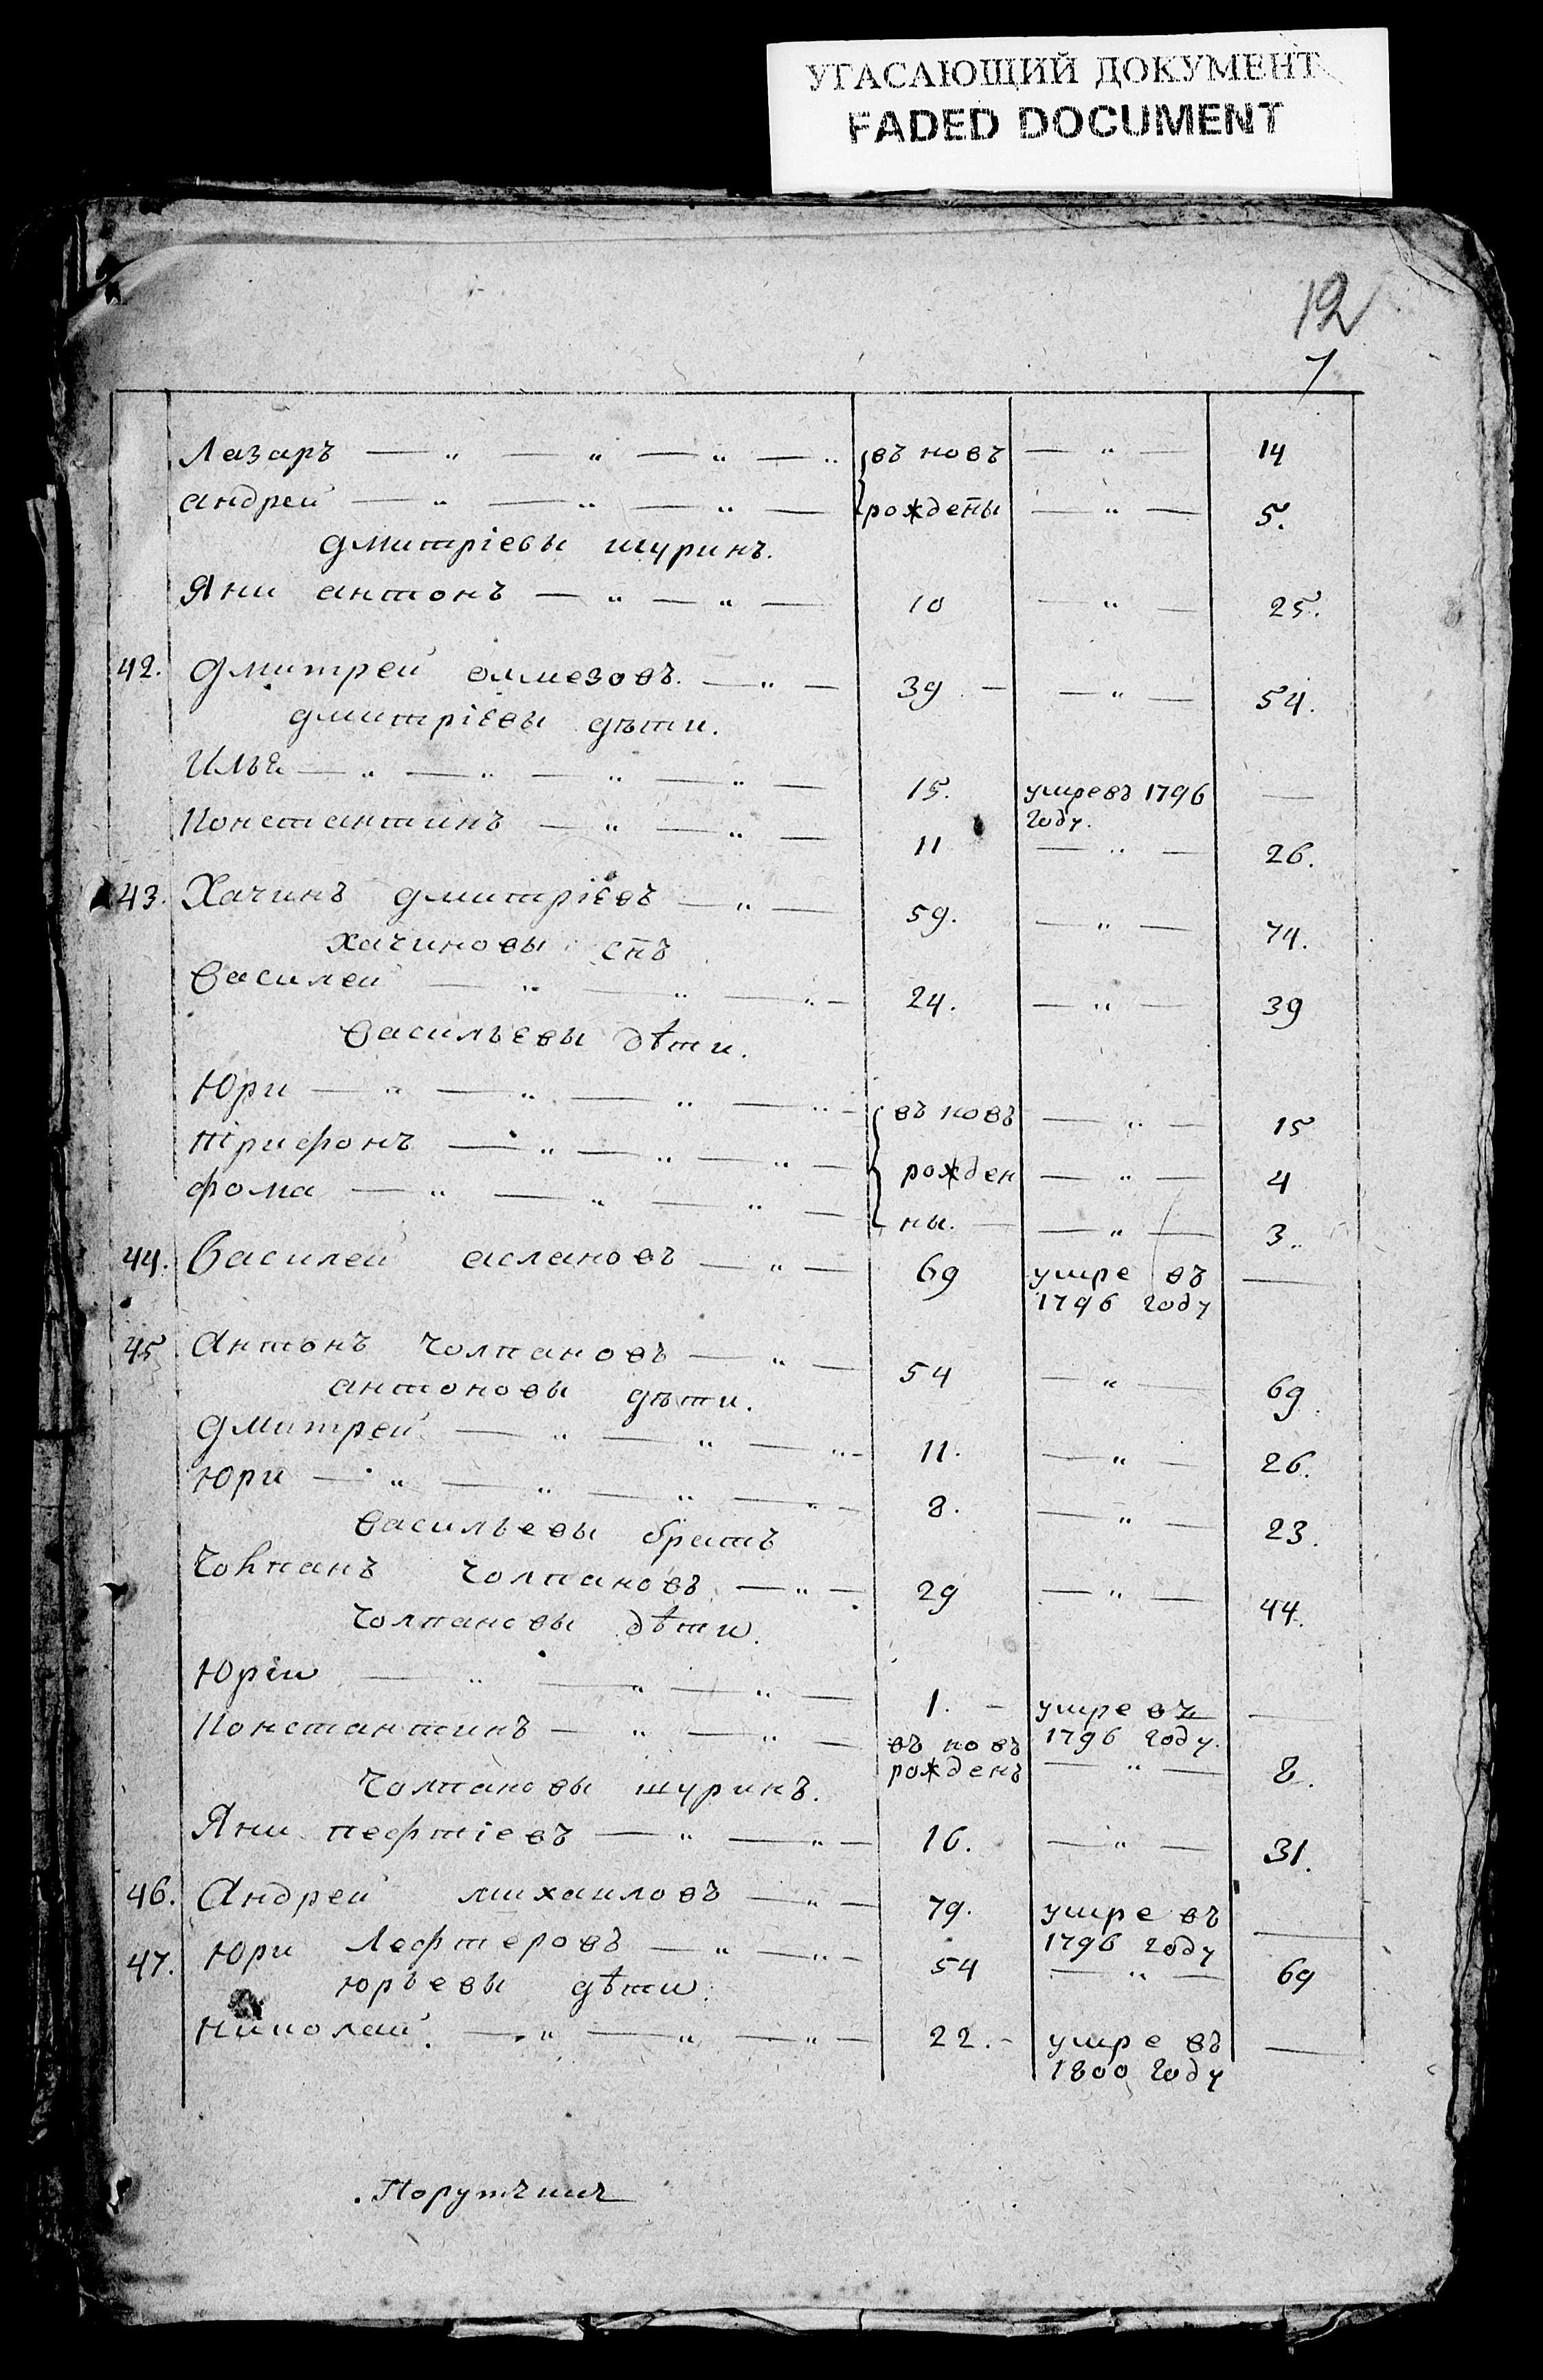 УГАСАЮЩИЙ ДОКУМЕНТ
FADED DOCUMENT
12
7
Лазаръ — " — " — " — " въ новъ — " — 14
андрей — " — " — " — рождены — " — 5.
дмитріевы шуринъ.
Яни антонъ — " — " — 10 — " — 25.
42. дмитрей елмезовъ. — " — 39. — — " — 54.
дмитріевы дѣти.
Илья — " — " — " — " — 15. умре въ 1796 —
году.
Константинъ — " — " — 11 — " — 26.
43. Хачинъ дмитріевъ — " — 59. — " — 74.
хачиновы снъ
Василей — " — " — " — 24. — " — 39
Васильевы дѣти.
Юри — " — " — " — " — въ новъ — " — 15
трифонъ — " — " — " — рожден — " — 4
фома — " — " — " — ны. — — " — 3.
44. Василей аслановъ — " — 69 умре въ —
1796 году
45 Антонъ чолпановъ — " — 54 — " — 69.
антоновы дѣти.
дмитрей — " — " — " — 11. — " — 26.
Юри — " — " — " — " — 8. — " — 23.
Васильевы братъ
Чолпанъ чолпановъ. — " — 29 — " — 44.
Чолпановы дѣти.
Юрій — " — " — " — 1. — умре въ —
1796 году.
Константинъ — " — " — въ новъ
рожденъ — " — 8.
Чолпановы шуринъ.
Яни пефтіевъ — " — " — 16. — " — 31.
46. Андрей михаиловъ — " — 79. умре въ —
1796 году
47. Юри Лефтеровъ — " — " — 54 — " — 69
юрьевы дѣти.
Николай. — " — " — " — 22. — умре въ —
1800 году
Порутчикъ